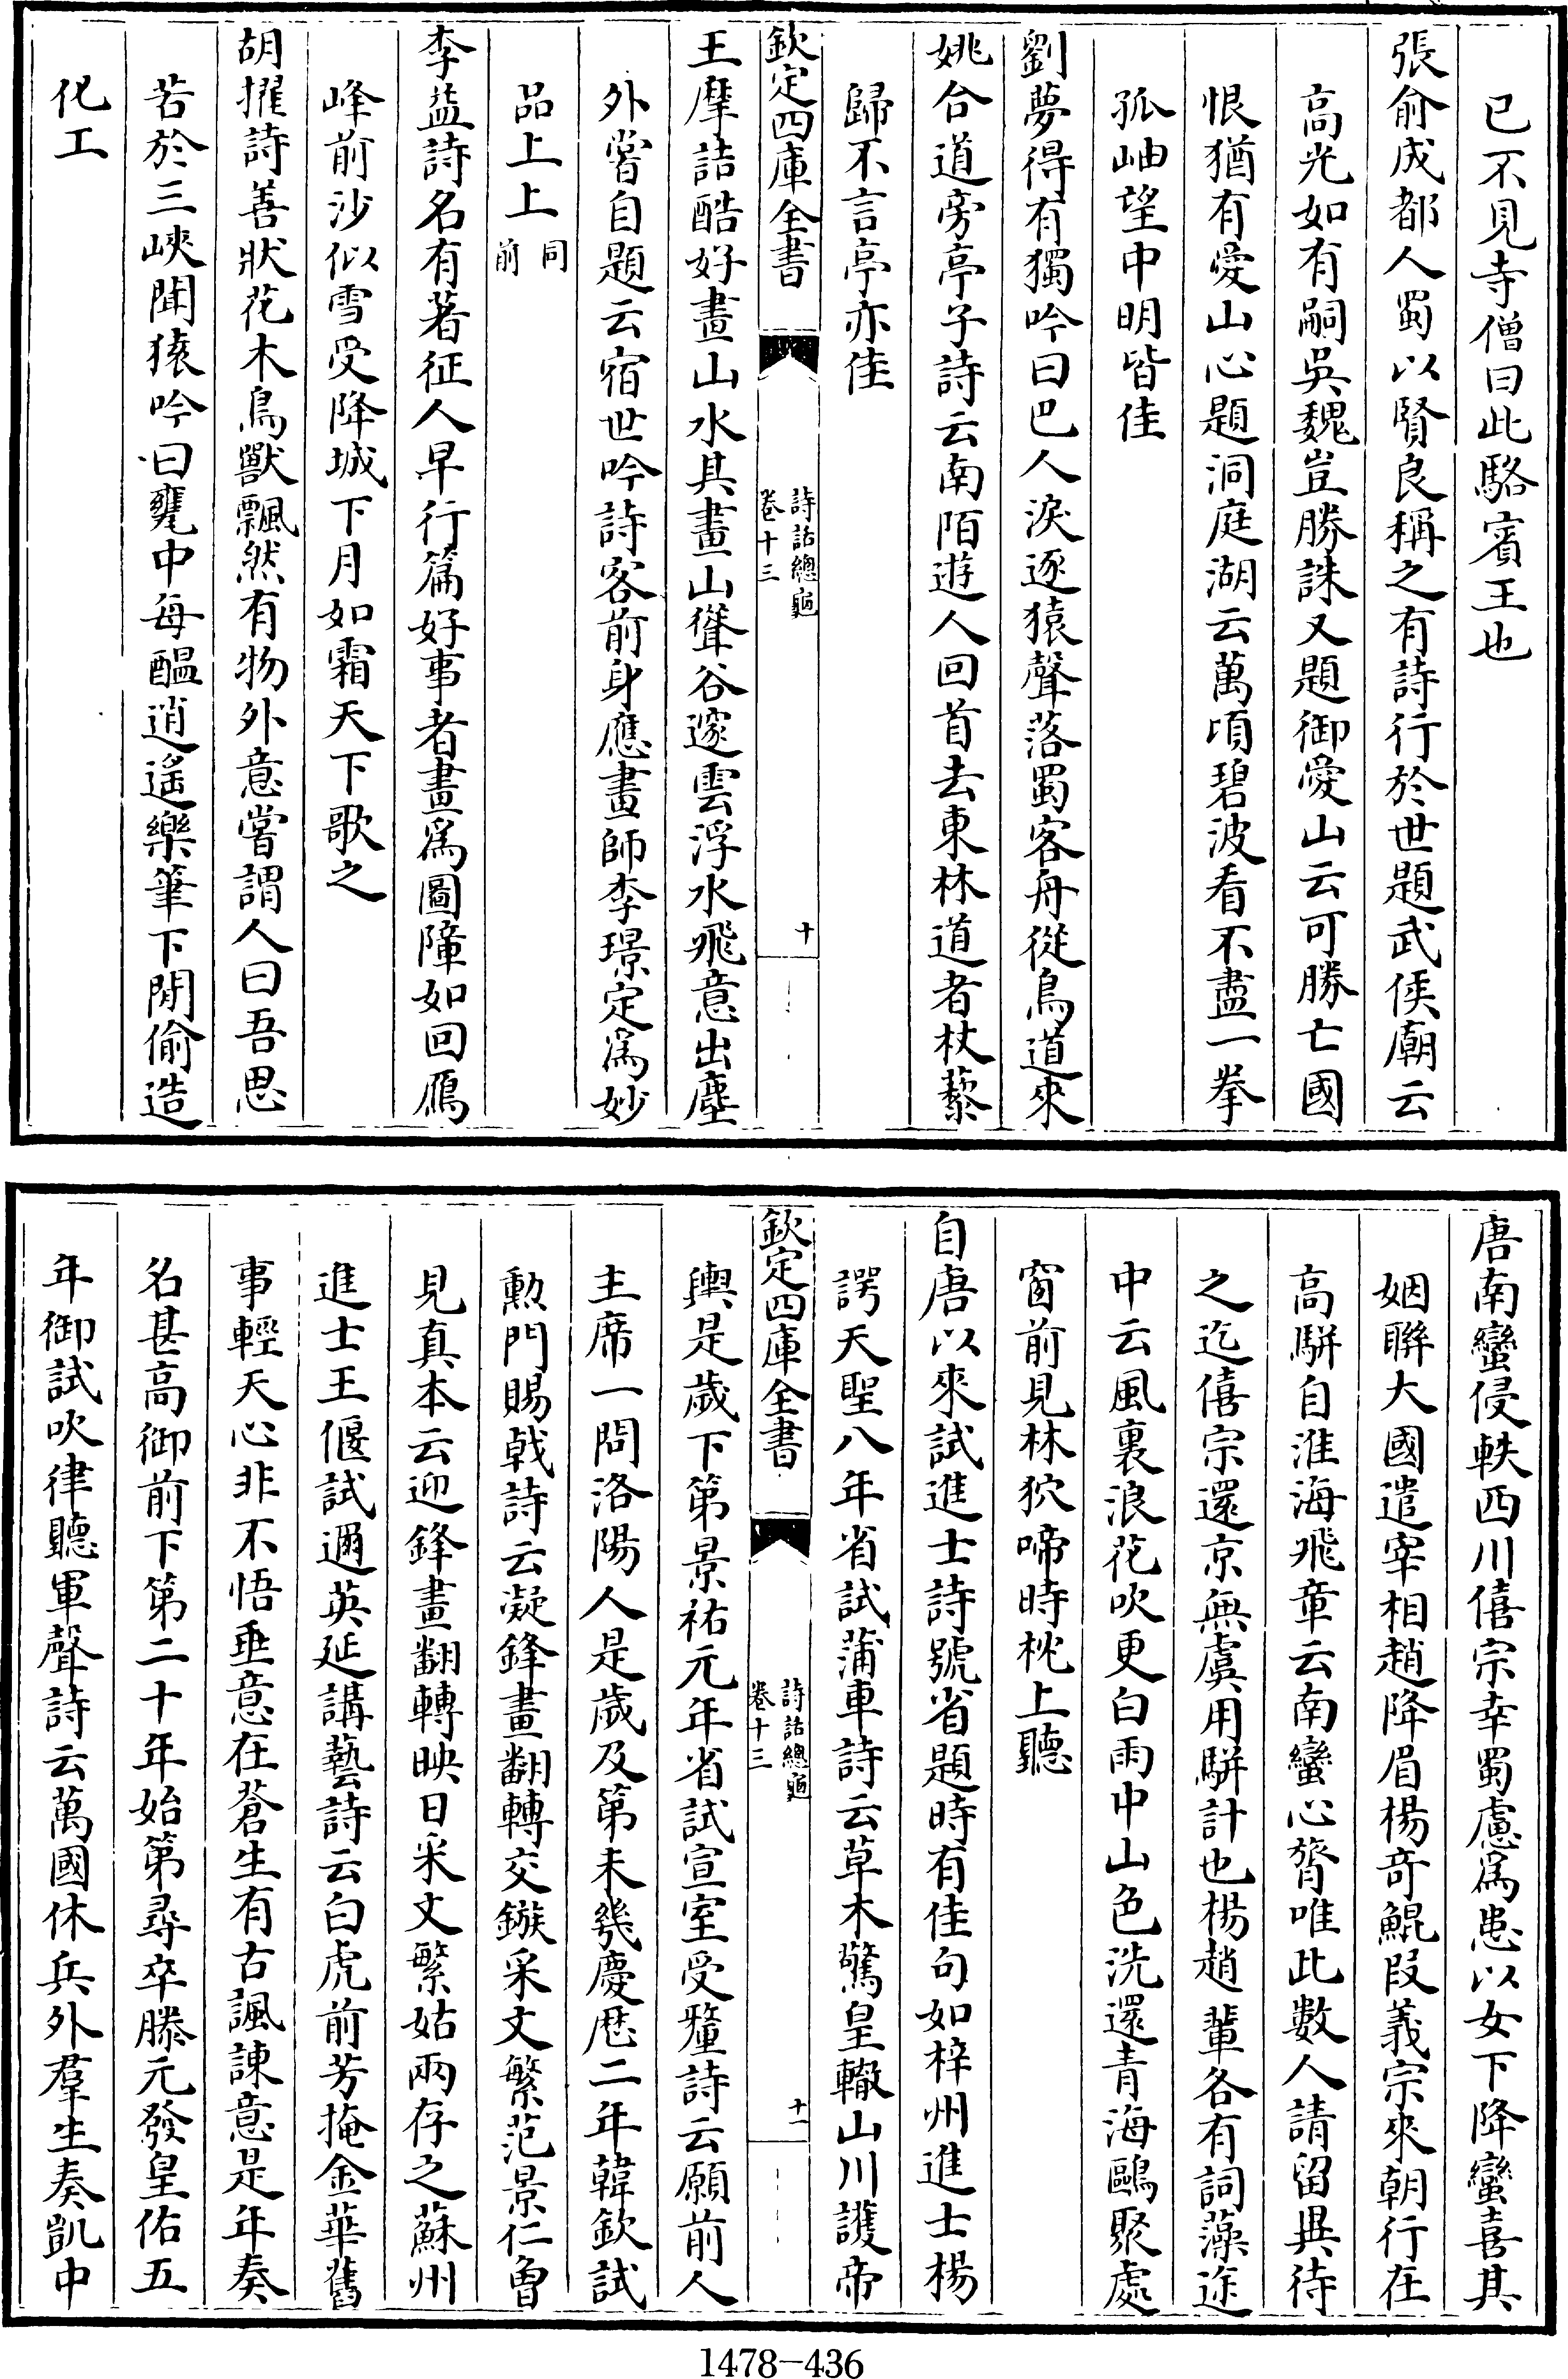 已不見寺僧曰此駱賓王也
張俞成都人蜀以賢良稱之有詩行於世題武侯廟云
高光如有嗣吳魏豈勝誅又題御愛山云可勝亡國
恨猶有愛山心題洞庭湖云萬頃碧波看不盡一拳
孤岫望中明皆佳
劉夢得有獨吟曰巴人淚逐猿聲落蜀客舟從鳥道來
姚合道旁亭子詩云南陌遊人回首去東林道者杖藜
歸不言亭亦佳
欽定四庫全書
詩話總龜
卷十三
十
王摩詰酷好畫山水其畫山聳谷邃雲浮水飛意出塵
外嘗自題云宿世吟詩客前身應畫師李璟定爲妙
品上上同前
李益詩名有著征人早行篇好事者畫爲圖障如回鴈
峰前沙似雪受降城下月如霜天下歌之
胡擢詩善狀花木鳥獸飄然有物外意嘗謂人曰吾思
苦於三峽聞猿吟曰甕中每醞逍遙樂筆下閒偷造
化工
唐南蠻侵軼西川僖宗幸蜀慮爲患以女下降蠻喜其
姻聯大國遣宰相趙降眉楊奇鯤段義宗來朝行在
高駢自淮海飛章云南蠻心膂唯此數人請留異待
之迄僖宗還京無虞用駢計也楊趙輩各有詞藻途
中云風裏浪花吹更白雨中山色洗還青海鷗聚處
窗前見林狖啼時枕上聽
自唐以來試進士詩號省題時有佳句如梓州進士楊
諤天聖八年省試蒲車詩云草木驚皇轍山川護帝
欽定四庫全書
詩話總龜
卷十三
十一
輿是歲下第景祐元年省試宣室受釐詩云願前人
主席一問洛陽人是歲及第未幾慶厯二年韓欽試
勲門賜戟詩云凝鋒畫翻轉交鏃采文繁范景仁曾
見真本云迎鋒畫翻轉映日采文繁姑兩存之蘇州
進士王偃試邇英延講藝詩云白虎前芳掩金華舊
事輕天心非不悟垂意在蒼生有古諷諫意是年奏
名甚高御前下第二十年始第尋卒滕元發皇佑五
年御試吹律聽軍聲詩云萬國休兵外羣生奏凱中
1478-436